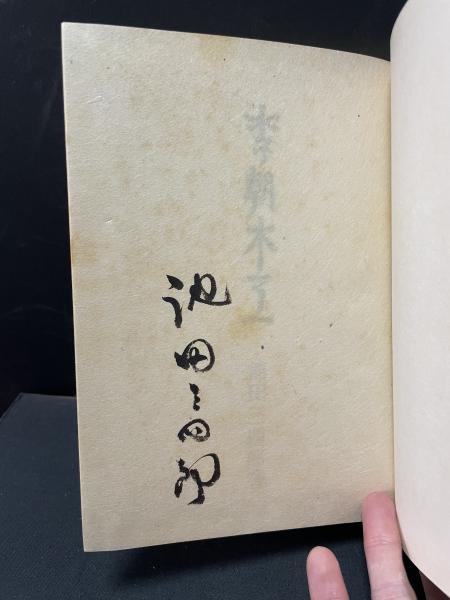 李朝木工
池田三四郎